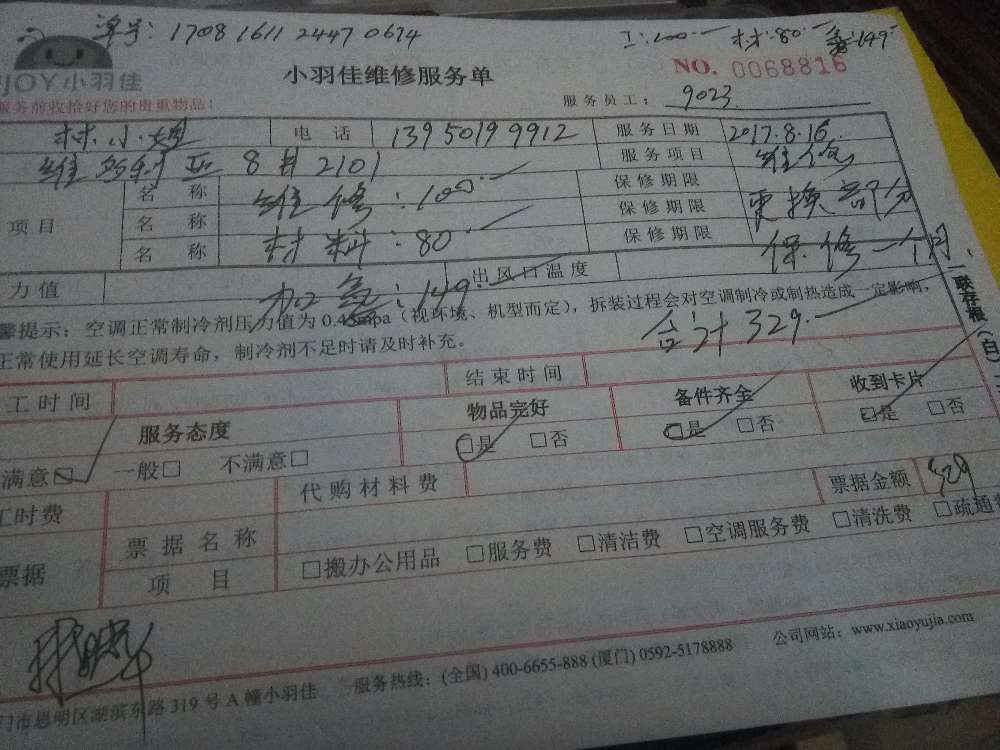 单号: 1708 1611 2447 0614
工:100- 材:80- 氟:149-
JOY小羽佳
小羽佳维修服务单
NO. 0068816
服务前收拾好您的贵重物品!
服务员工: 9023
林小姐 电话 13950199912 服务日期 2017.8.16.
维多利亚 8# 2101 服务项目 维修
项目 名称 维修:100- 保修期限
名称 材料:80- 保修期限 更换部分
名称 保修期限 保修一个月
力值 加氟:149- 出风口温度
馨提示:空调正常制冷剂压力值为0.45mpa(视环境、机型而定),拆装过程会对空调制冷或制热造成一定影响,
正常使用延长空调寿命,制冷剂不足时请及时补充。
合计 329.-
一联存根(白)
工时间 结束时间
服务态度 物品完好 备件齐全 收到卡片
满意☑ 一般□ 不满意□ ☑是 □否 ☑是 □否 ☑是 □否
工时费 代购材料费 票据金额 329
票据 票据名称 □搬办公用品 □服务费 □清洁费 □空调服务费 □清洗费 □疏通
项目
门市思明区湖滨东路319号A幢小羽佳 服务热线:(全国) 400-6655-888 (厦门) 0592-5178888 公司网站:www.xiaoyujia.com